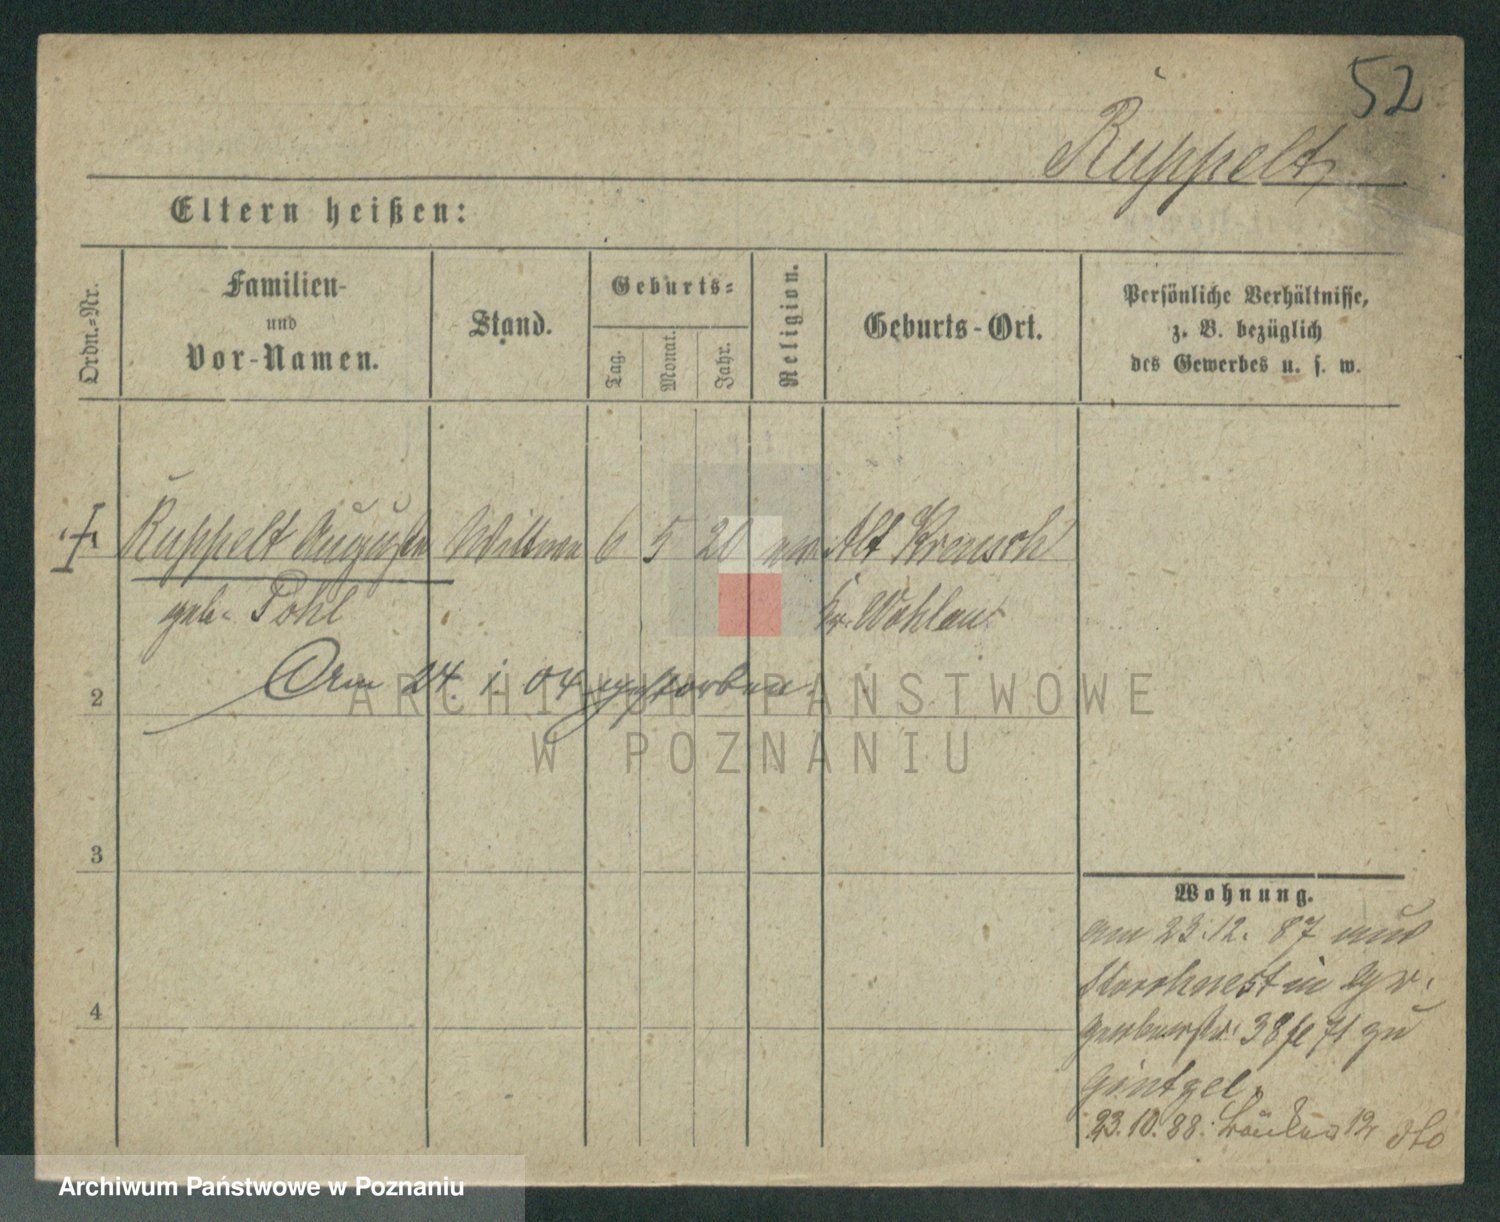 52
Ruppelt
Eltern heißen:
Ordn.-Nr.
Familien-
und
Vor-Namen.
Stand.
Geburts-
Tag.
Monat.
Jahr.
Religion.
Geburts-Ort.
Persönliche Verhältnisse,
z. B. bezüglich
des Gewerbes u. s. w.
Ruppelt Auguste Wittwe 6 5 20 ev. Alt Krensch
geb. Pohl Kr. Wohlau
Am 24. 1. 04 gestorben.
2
3
4
Wohnung.
am 23.12. 87 aus
Storchnest in gr.
gerberstr. 38 71 zu
Gintzel.
23.10.88. 12 dto
ARCHIWUM PAŃSTWOWE
W POZNANIU
Archiwum Państwowe w Poznaniu